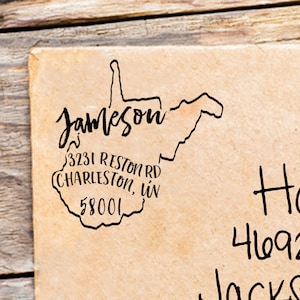 Jameson
3231 RESTON RD
CHARLESTON, WV
58001
Ho
4692
Jacks